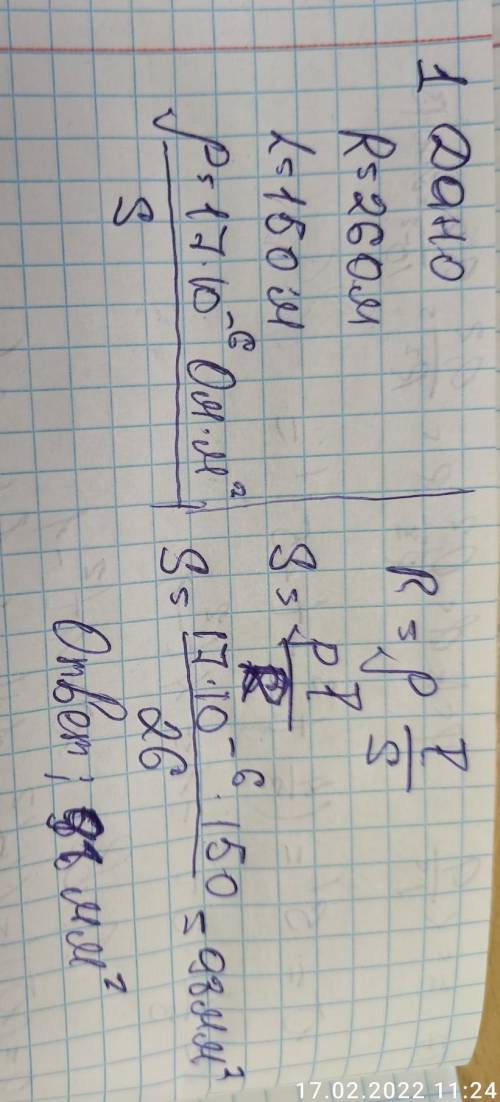 1 Дано
R = 26 Ом
L = 150 м
ρ = 17 · 10⁻⁶ Ом · м²
S
R = ρ l/S
S = ρ l/R
S = 17 · 10⁻⁶ · 150 / 26 = 98 мм²
Ответ: 98 мм²
17.02.2022 11:24